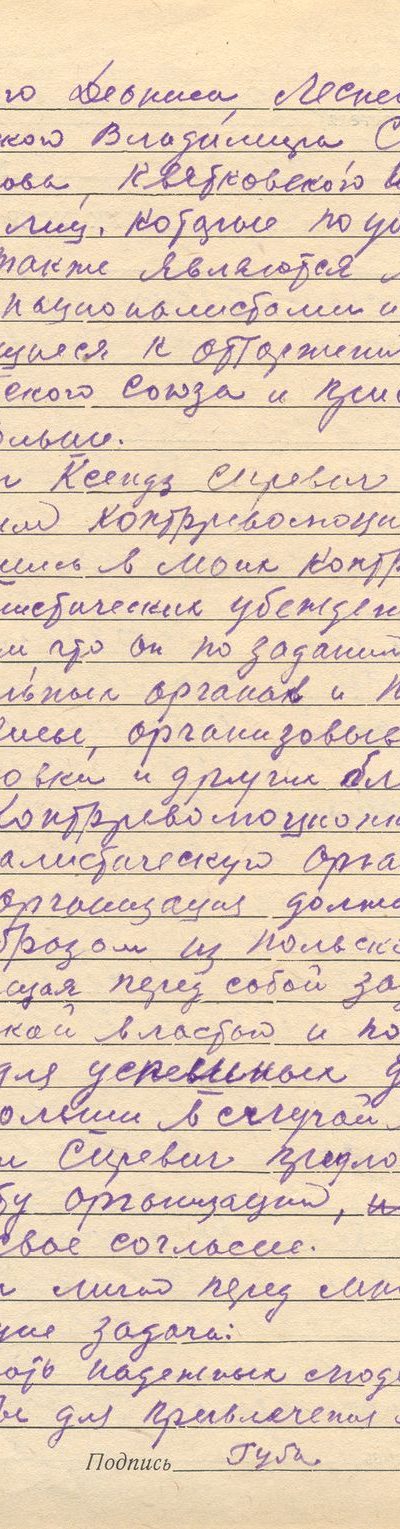 го Дениса, Леснев
ского Владимира С
ова, Квятковского
лиц, которые по у
также являются
националистами и
щиеся к отторжени
ского Союза и при
ольши.
Ксендз Сиревич
контрреволюци
шись в моих контр
листических убежден
и что он по заданию
льных органах и
организовыв
овки и других бл
контрреволюционн
алистическую орга
организация должн
бразом из польско
щая перед собой за
ской властью и по
для успешных
ольши в случай
Сиревич предло
бу организации,
свое согласие.
лично перед мно
щие задачи:
ать надежных люде
для привлечения
Подпись Губи